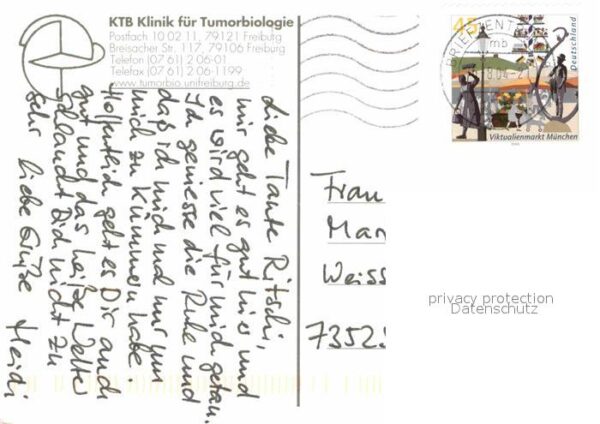 KTB Klinik für Tumorbiologie
Postfach 10 02 11, 79121 Freiburg
Breisacher Str. 117, 79106 Freiburg
Telefon (07 61) 2 06-01
Telefax (07 61) 2 06-1199
www.tumorbio.uni-freiburg.de
Liebe Tante Ritschi,
mir geht es gut hier und
es wird viel für mich getan.
Ich geniesse die Ruhe und
das ich mich und nur um
mich zu kümmern habe.
Hoffentlich geht es Dir auch
gut und das heiße Wetter
schlaucht Dich nicht zu
sehr liebe Grüße Heidi
BRIEFZENT
45
Deutschland
Viktualienmarkt München
Frau
Mar
Weiss
7352
privacy protection
Datenschutz